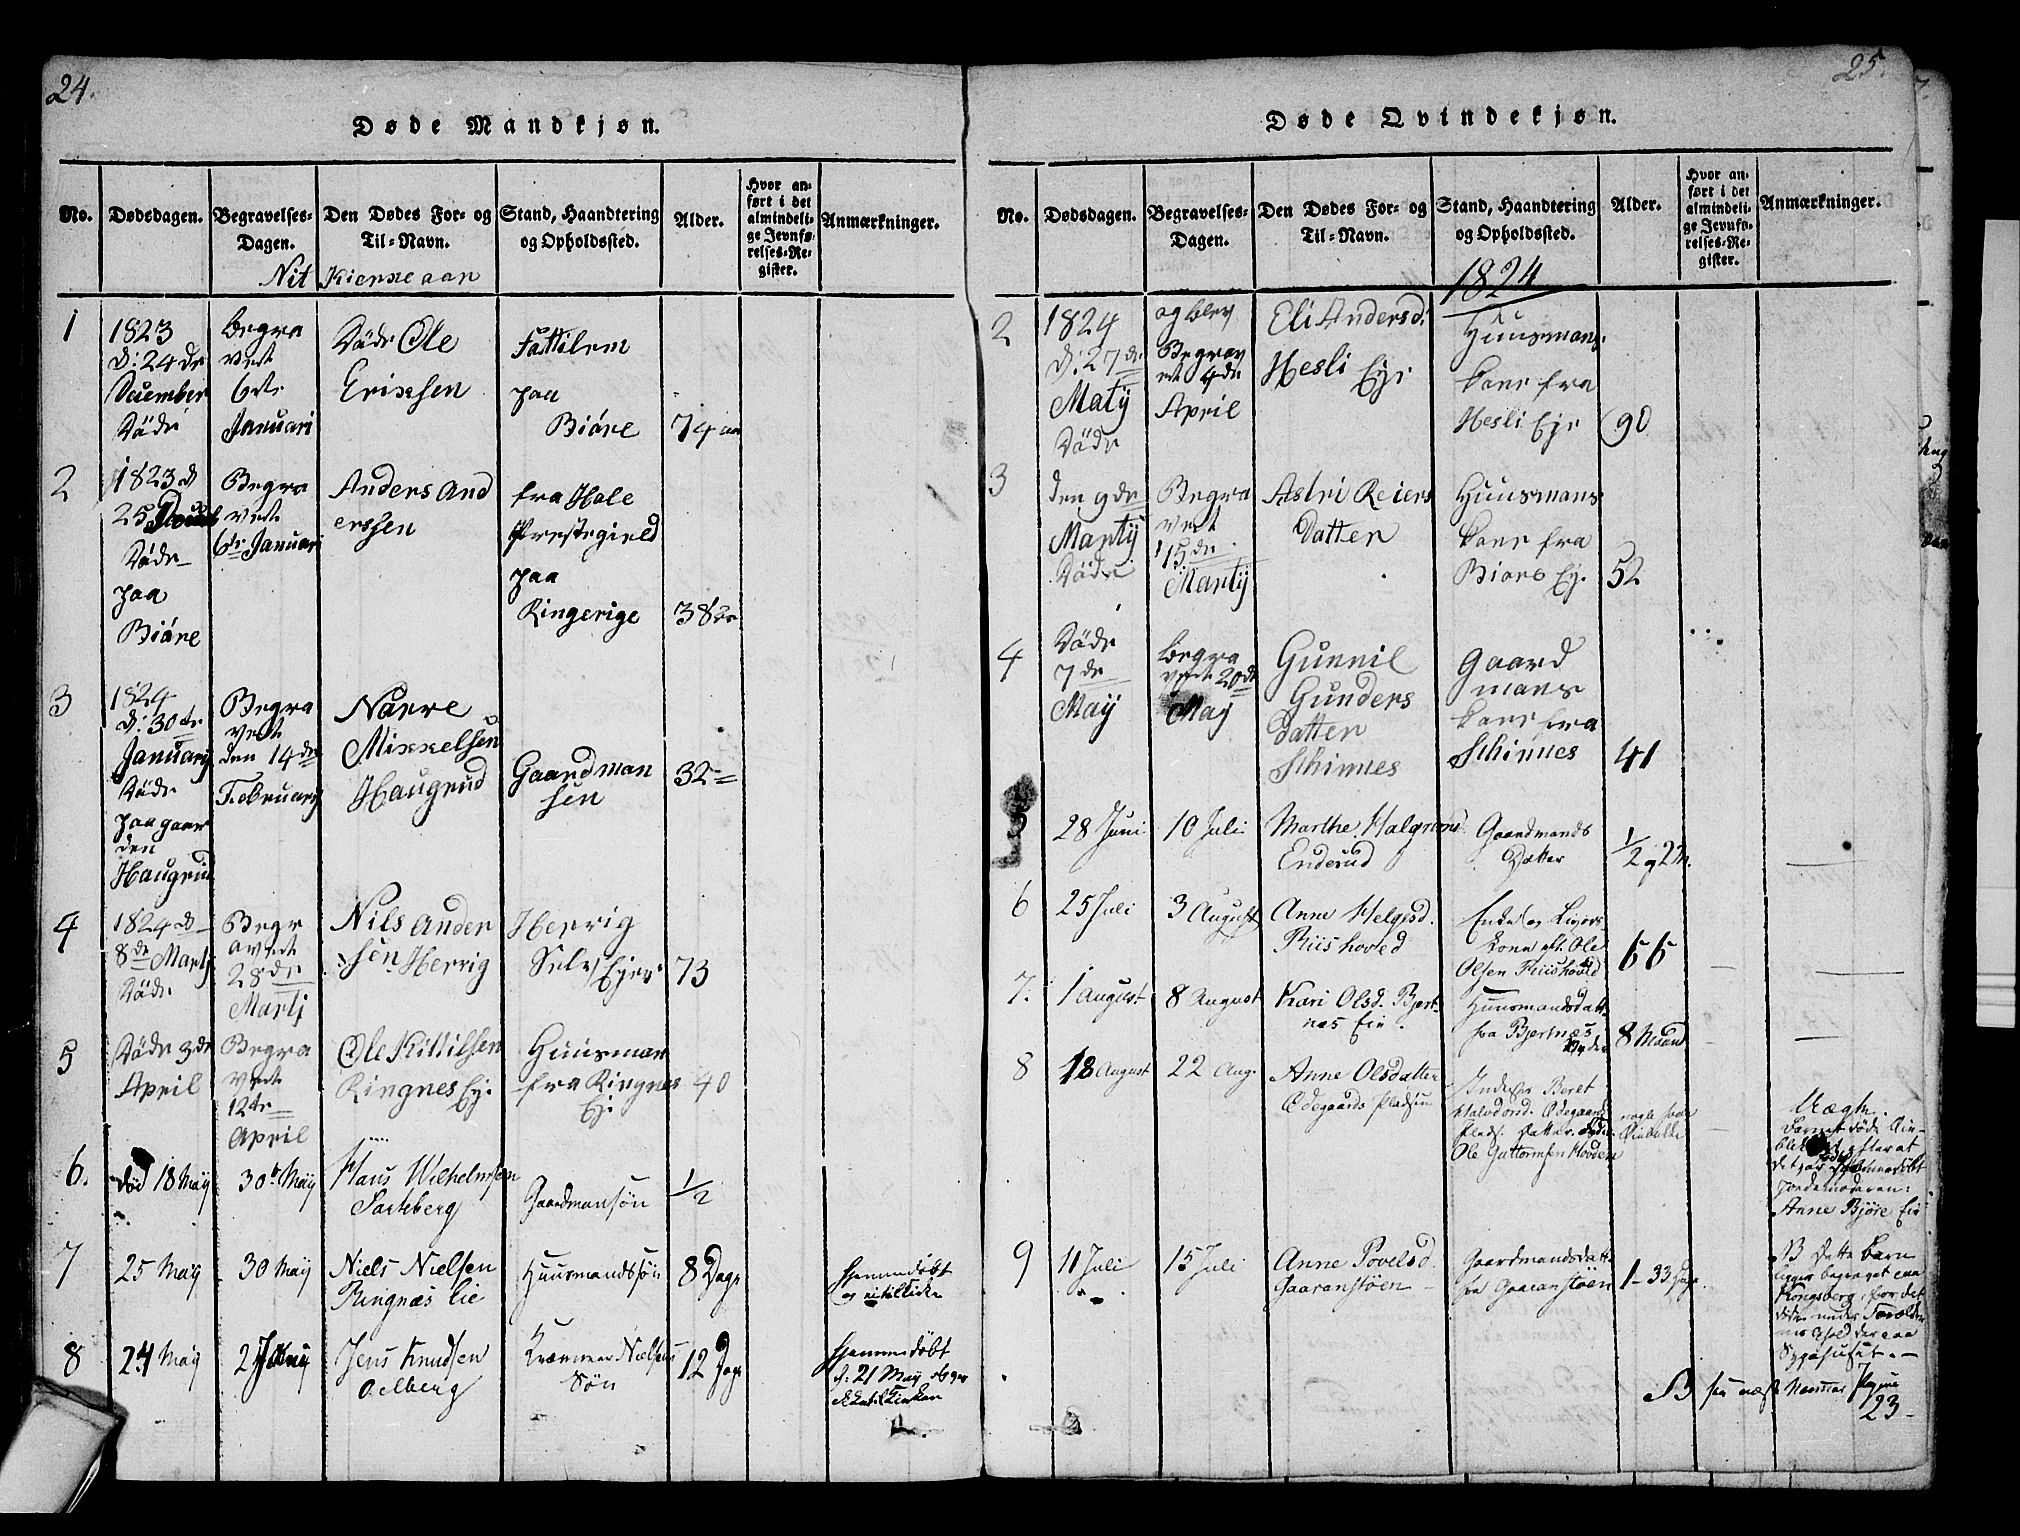 24.
Døde Mandkjøn.
No.
Dødsdagen.
Begravelses-
Dagen.
Den Dødes For- og
Til-Navn.
Stand, Haandtering
og Opholdssted.
Alder.
Hvor an-
ført i det
almindeli-
ge Jevnfø-
relses-Re-
gister.
Anmærkninger.
1
1823
d: 24 de
December
Døde
Begra
vet
6te
Januari
Døde Ole
Erixsen
Fattilem
paa
Biöre
74 aar
2
1823 d
25
Døde
paa
Biöre
Begra
vet
6te Januari
Anders And
erssen
fra Hole
Prestegield
paa
Ringerige
38
3
1824
d: 30te
Januarij
Døde
paa gaar
den
Haugrud
Begra
vet
den 14de
Februarij
Narve
Mixxelsen
Haugrud
Gaardman
sen
32
4
1824 d
8de Martj
Døde
Begr
avet
28de
Martj
Nils Ander
sen Herrig
Herrig
Selv Ejer
73
5
Døde 3de
April
Begra
vet
12te
April
Ole Kittilsen
Ringnes Ej.
Huusman
fra Ringnes
Ej.
40
6.
død 18 Maÿ
30te Maÿ
Hans Wilhelmsen
Gaardmansøn
1/2
7
25 May
30 May
Niels Nielsen
Ringnæs Eie
Huusmandssøn
8 Dage
hjemmedøbt
8
24 May
Jens Knudsen
Oelberg
Søn
12 Dage
hjemmedøbt
d. 21 May
25.
Døde Qvindekjøn.
No.
Dødsdagen.
Begravelses-
Dagen.
Den Dødes For- og
Til-Navn.
Stand, Haandtering
og Opholdssted.
Alder.
Hvor an-
ført i det
almindeli-
ge Jevnfø-
relses-Re-
gister.
Anmærkninger.
1824
2
1824
d. 27 de
Døde
og blev
Begrav
et 4de
April
Eli Andersd.
Hesli Eje
Huusmans
kone fra
Hesli Eje
90
3
den 9de
Martij
Døde
Begra
vet
15de
Martij
Astri Reiers
Datter
Huusmans
kone fra
Biøre Ej.
52
4
Døde
7de
Maÿ
Begra
vet 20de
May
Gunnil
Gunders
datter
Skinnes
Gaard
mans
kone fra
Skinnes
41
5
28 Juni
10 Juli
Marthe Halgrimd.
Enderud
Gaardmands
Datter
1/2 og 2 M.
6
25 Juli
3 August
Anne Helgesd.
Riishoved
Enke og Livørs
kone eft. Ole
Olsen Riishoved
66
7.
1 August
8 August
Kari Olsd. Bjert-
næs Eie.
Huusmandsdatt.
fra Bjertnæs
8 Maand
8
18 August
22 Aug.
Anne Olsdatter
Ødegaards pladsen
Beret
Halvdorsd. Ødegaards
plads. Datter.
Ole Guttormsen
nogle
Uægte.
Barnet døde
efter at
det var hjemmedøbt
Jordemoderen:
Anne Bjøre Eie
9
11 Juli
15 Juli
Anne Povelsd.
Gaaranstøen
Gaardmandsdatt.
fra Gaaranstøen
1 - 33 Dage.
NB Dette Barn
ligger begravet paa
Kongsberg, for det
døde under Foreldre-
nes Ophold der paa
Sygehuset. -
NB see næst
23 -